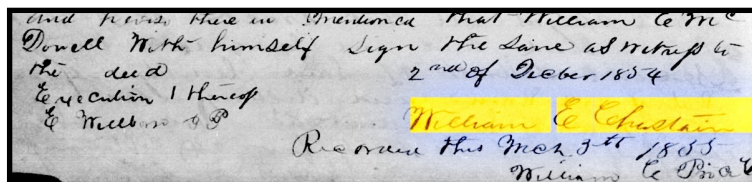 and [uses] there in mentioned that William E Mc
Dowell With himself sign the Same as witness to
the deed 2nd of Decber 1854
Execution thereof
E Willbon J P William E Chastain
Recorded this Mch 3th 1855
William E